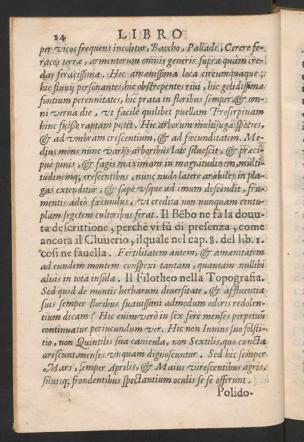 14 LIBRO
per vicos frequens incolitur, Baccho, Pallade, Cerere fe-
races terræ, armentorum omnis generis supra quàm cre-
das feracissima. Hic amœnissima loca circumquaque;
hic fluuij personantes, hic obstrepentes riui, hic gelidissimæ
fontium perennitates, hic prata in floribus semper, & om-
ni verna die, vt facilè quilibet puellam Proserpinam
hinc fuisse raptam putet. Hic arborum multiiugæ species,
& ad vmbram crescentium, & ad fœcunditatem. Me-
dius mons nunc varijs arboribus latè siluescit, & præci-
puè punis, & fagis maximam in magnitudinem, multi-
tudinemq; crescentibus, nunc nudo latere arabiles in pla-
gas extenditur, & sæpè vsque ad imum descendit, fru-
mentis adeò fœcundus, vt credita non nunquam centu-
plam segetem cultoribus ferat. Il Bẽbo ne fà la douu-
ta descrittione, perchè vi fù di presenza, come
ancora il Cluuerio, il quale nel cap. 8. del lib. 1.
così ne fauella. Fertilitatem autem, & amœnitatem
ad eundem montem conspexi tantam, quantam nullibi
aliàs in tota insula. Il Filoteo nella Topografia.
Sed quid de montis herbarum diuersitate, & affluentia
suis semper floribus suauissimi admodum odoris redolen-
tium dicam? Hic enim verò in sex ferè menses perpetuũ
continuatur periucundum ver. Hic non Iunius suo solsti-
tio, non Quintilis sua canicula, non Sextilis, quo cuncta
arescunt, menses vnquam dignoscuntur. Sed hic semper
Mars, semper Aprilis, & Maius virescentibus agris,
siluisq; frondentibus spectantium oculis se se offerunt.
Polido-